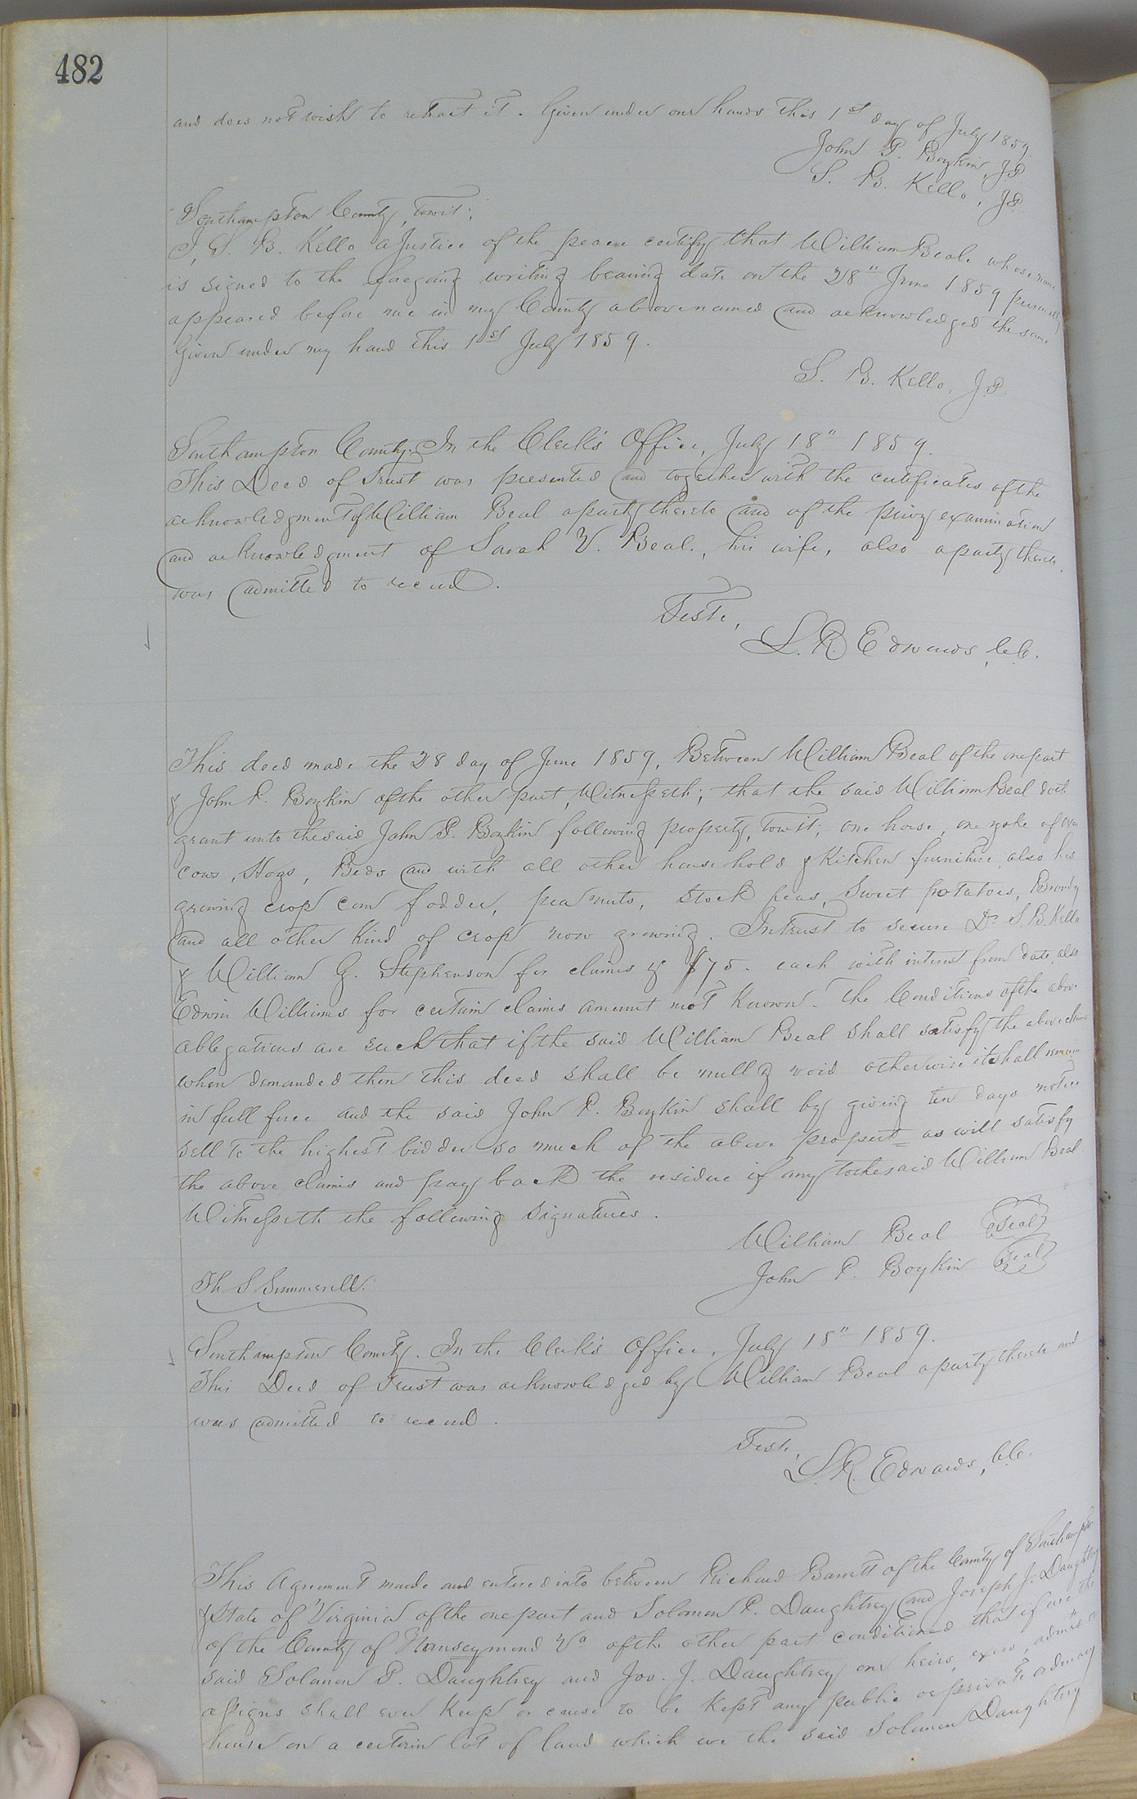 482
and does not wish to retract it. Given under our hands this 1st day of July 1859.
John P. Boykin, JP
S. B. Kello, JP.
Southampton County, towit;
I, S. B. Kello a Justice of the peace certify that William Beal whose name
is signed to the foregoing writing bearing date on the 28" June 1859 personally
appeared before me in my County abovenamed and acknowledged the same
Given under my hand this 1st July 1859.
S. B. Kello, JP.
Southampton County. In the Clerk's Office, July 18" 1859.
This Deed of Trust was presented and together with the certificates of the
acknowledgment of William Beal a party thereto and of the privy examination
and acknowledgment of Sarah V. Beal, his wife, also a party thereto,
was admitted to record.
Teste,
L. R. Edwards, C.C.
This deed made the 28 day of June 1859, Between William Beal of the one part
& John P. Boykin of the other part, Witnesseth; that the said William Beal doth
grant unto the said John P. Boykin following property, towit; one horse, one yoke of oxen
cows, Hogs, Beds and with all other house hold & Kitchen furniture, also his
growing crop corn fodder, pea nuts, stock peas, Sweet potatoes, Brandy
and all other kind of crop now growing. In trust to secure Dr. S B. Kello
& William G. Stephenson for claims of $75. each with interest from date, also
Edwin Williams for certain claims amount not Known. The Conditions of the above
ablegations are such that if the said William Beal shall satisfy the above claims
when demanded then this deed shall be null & void otherwise it shall remain
in full force and the said John P. Boykin shall by giving ten days notice
sell to the highest bidder so much of the above propert= as will satisfy
the above claims and pay back the residue if any to the said William Beal
Witnesseth the following signatures.
William Beal Seal
John P. Boykin Seal
Th S Summerell.
Southampton County. In the Clerk's Office, July 18" 1859.
This Deed of Trust was acknowledged by William Beal a party thereto and
was admitted to record.
Teste,
L. R. Edwards, C.C.
This Agreement made and entered into between Richard Barrett of the County of Southampton
& State of Virginia of the one part and Solomon P. Daughtrey and Joseph J. Daughtrey
of the County of Nansemond Va of the other part conditioned that if we the
said Solomon P. Daughtrey and Jos. J. Daughtrey our heirs, exors, admrs or
assigns shall ever Keep or cause to be Kept any public or private ordinary
house on a certain lot of land which we the said Solomon Daughtrey